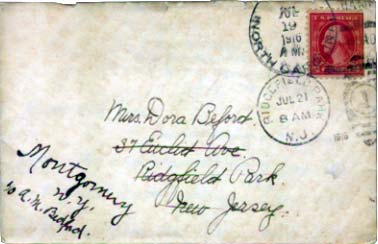 JUL
19
1916
A M
NORTH CAR
RIDGEFIELD PARK
JUL 21
8 AM
N.J.
1916
1
Mrs. Dora Beford
37 Euclid Ave
Ridgfield Park
New Jersey.
Montgomery
N.Y.